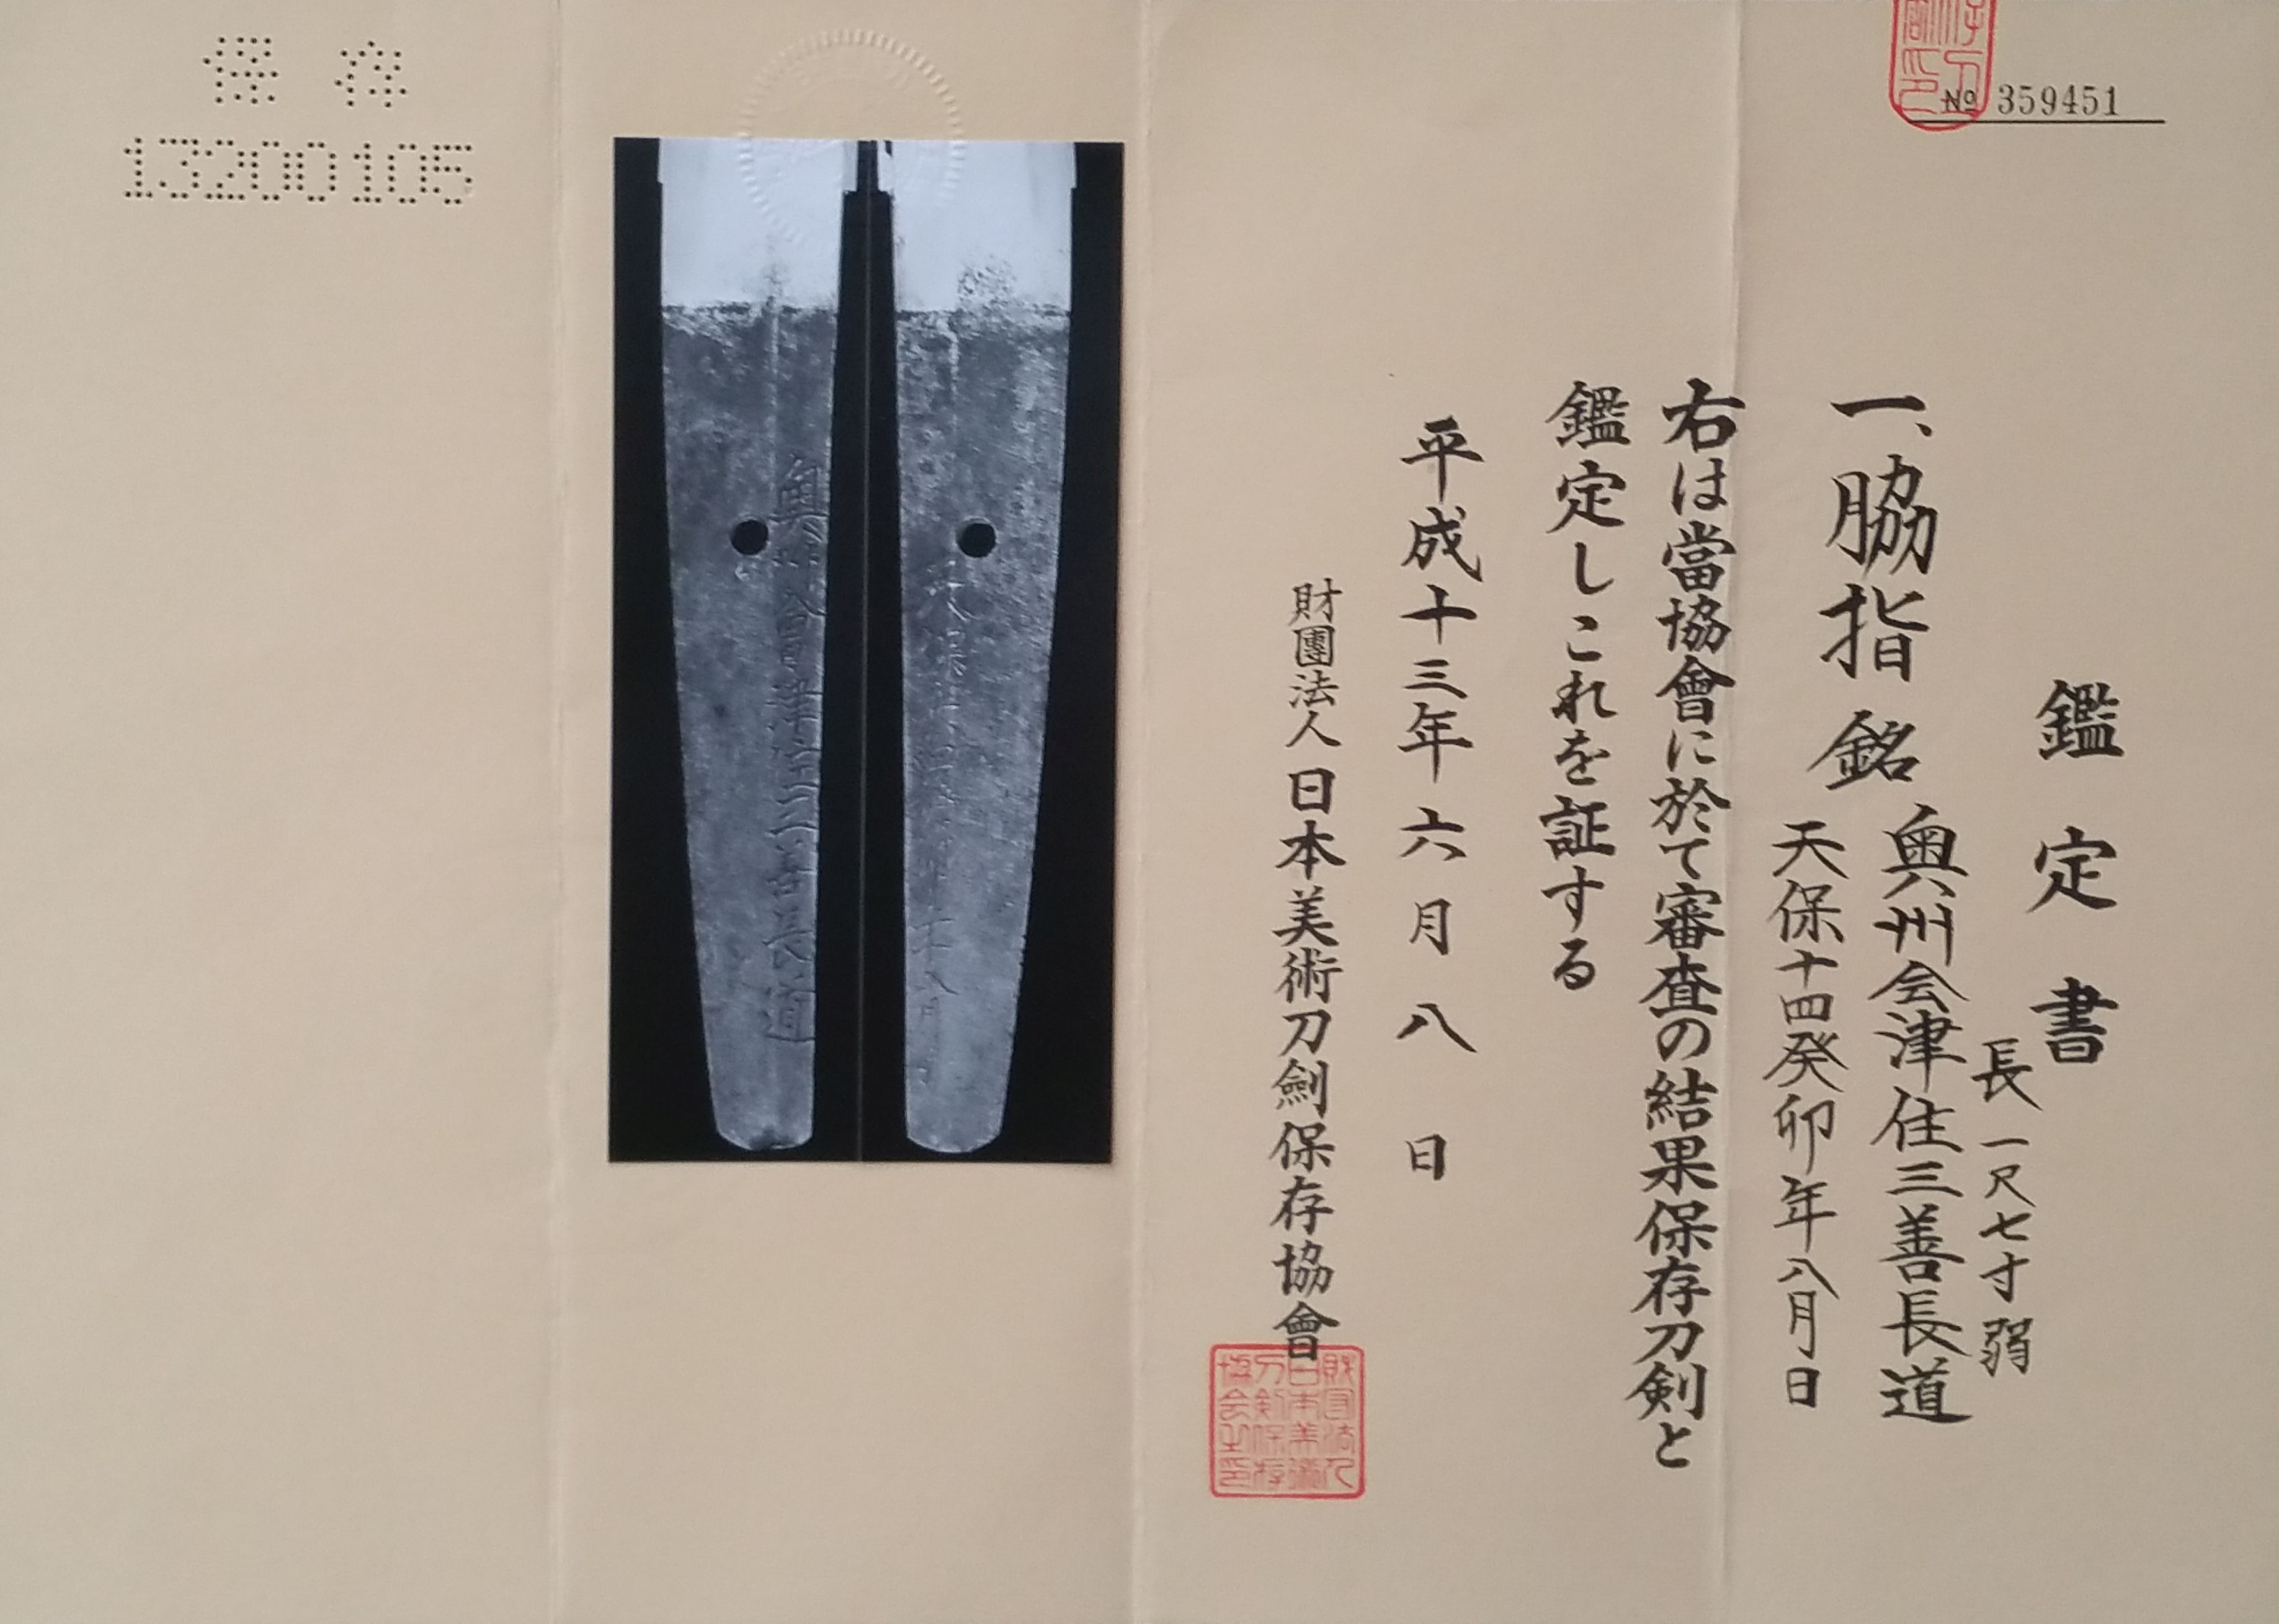 № 359451
鑑定書
長一尺七寸弱
一、脇指 銘 奥州会津住三善長道
天保十四癸卯年八月日
右は當協會に於て審査の結果保存刀剣と
鑑定しこれを証する
平成十三年六月八日
財團法人日本美術刀劍保存協會
財団法人
日本美術
刀剣保存
協会之印
奥州會津住三善長道
保存
13200105